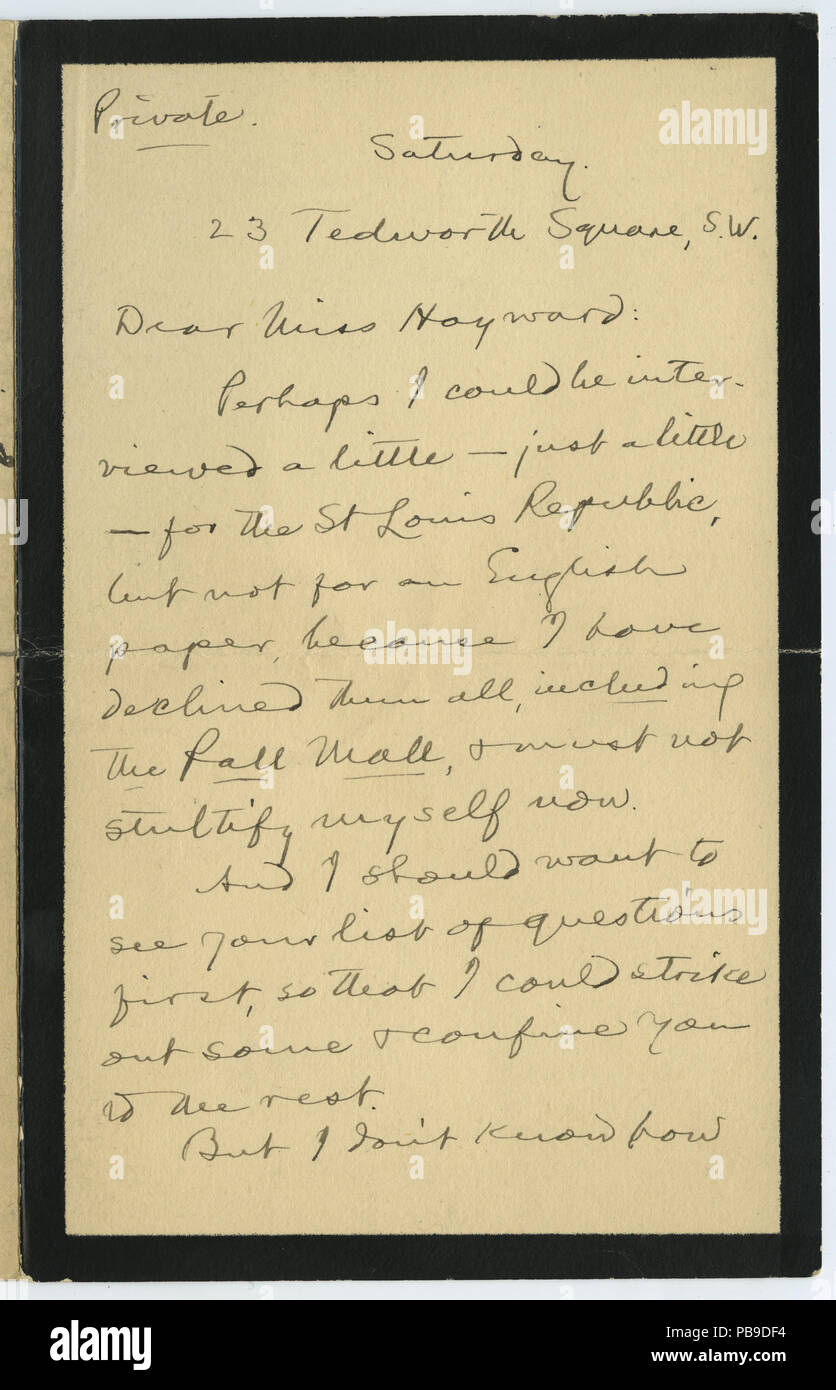 Private.
Saturday.
23 Tedworth Square, S.W.
Dear Miss Hayward:
Perhaps I could be inter-
viewed a little — just a little
— for the St Louis Republic,
but not for an English
paper, because I have
declined them all, including
the Pall Mall, & must not
stultify myself now.
And I should want to
see your list of questions
first, so that I could strike
out some & confine you
to the rest.
But I don't know how
alamy
Image ID: PB9DF4
www.alamy.com